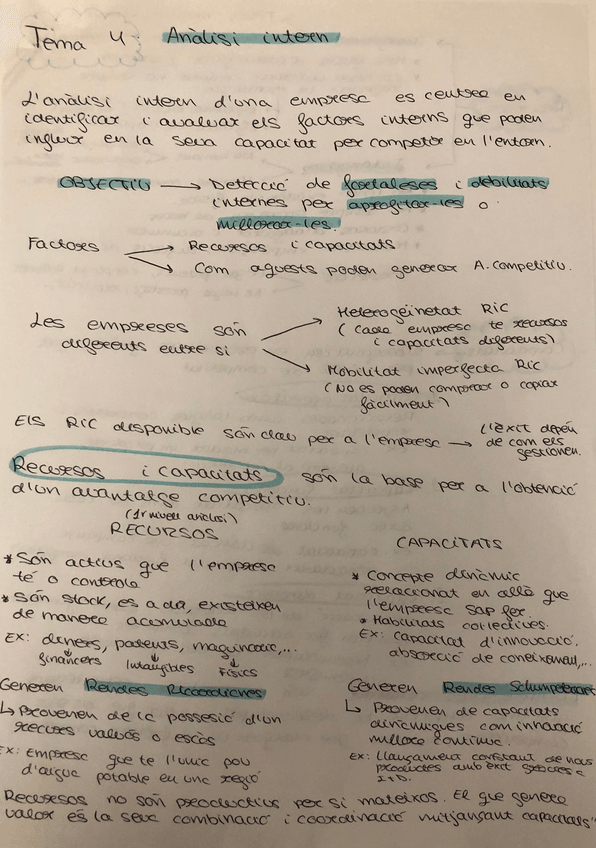 Tema 4. Anàlisi intern
L'anàlisi intern d'una empresa es centra en
identificar i avaluar els factors interns que poden
influir en la seva capacitat per competir en l'entorn.
OBJECTIU → Detecció de fortaleses i debilitats
internes per aprofitar-les o
millorar-les.
Factors → Recursos i capacitats
→ Com aquests poden generar A. competitiu.
Les empreses són
diferents entre si
→ Heterogeïnetat RiC
(Cada empresa te recursos
i capacitats diferents)
→ Mobilitat imperfecta RiC
(No es poden comprar o copiar
fàcilment)
Els RiC disponible són clau per a l'empresa → L'èxit depèn
de com els
gestionen.
Recursos i capacitats són la base per a l'obtenció
d'un avantatge competitiu.
(1r nivell anàlisi)
RECURSOS
* Són actius que l'empresa
té o controla
* Són stock, es a dir, existeixen
de manera acumulada
EX: diners, patents, maquinaria,...
financers Intangibles Físics
Generen Rendes Ricardianes
↳ Provenen de la possesió d'un
recurs valuós o escàs
Ex: Empresa que te l'unic pou
d'aigua potable en una regió
CAPACITATS
* Concepte dinàmic
relacionat en allò que
l'empresa sap fer.
* Habilitats col·lectives.
Ex: Capacitat d'innovació,
absorció de coneixement,...
Generen Rendes Schumpeterianes
↳ Provenen de capacitats
dinàmiques com innovació
millora continua.
Ex: Llançament constant de nous
productes amb èxit gràcies a
I+D.
Recursos no són productius per si mateixos. El que genera
valor és la seva combinació i coordinació mitjançant capacitats